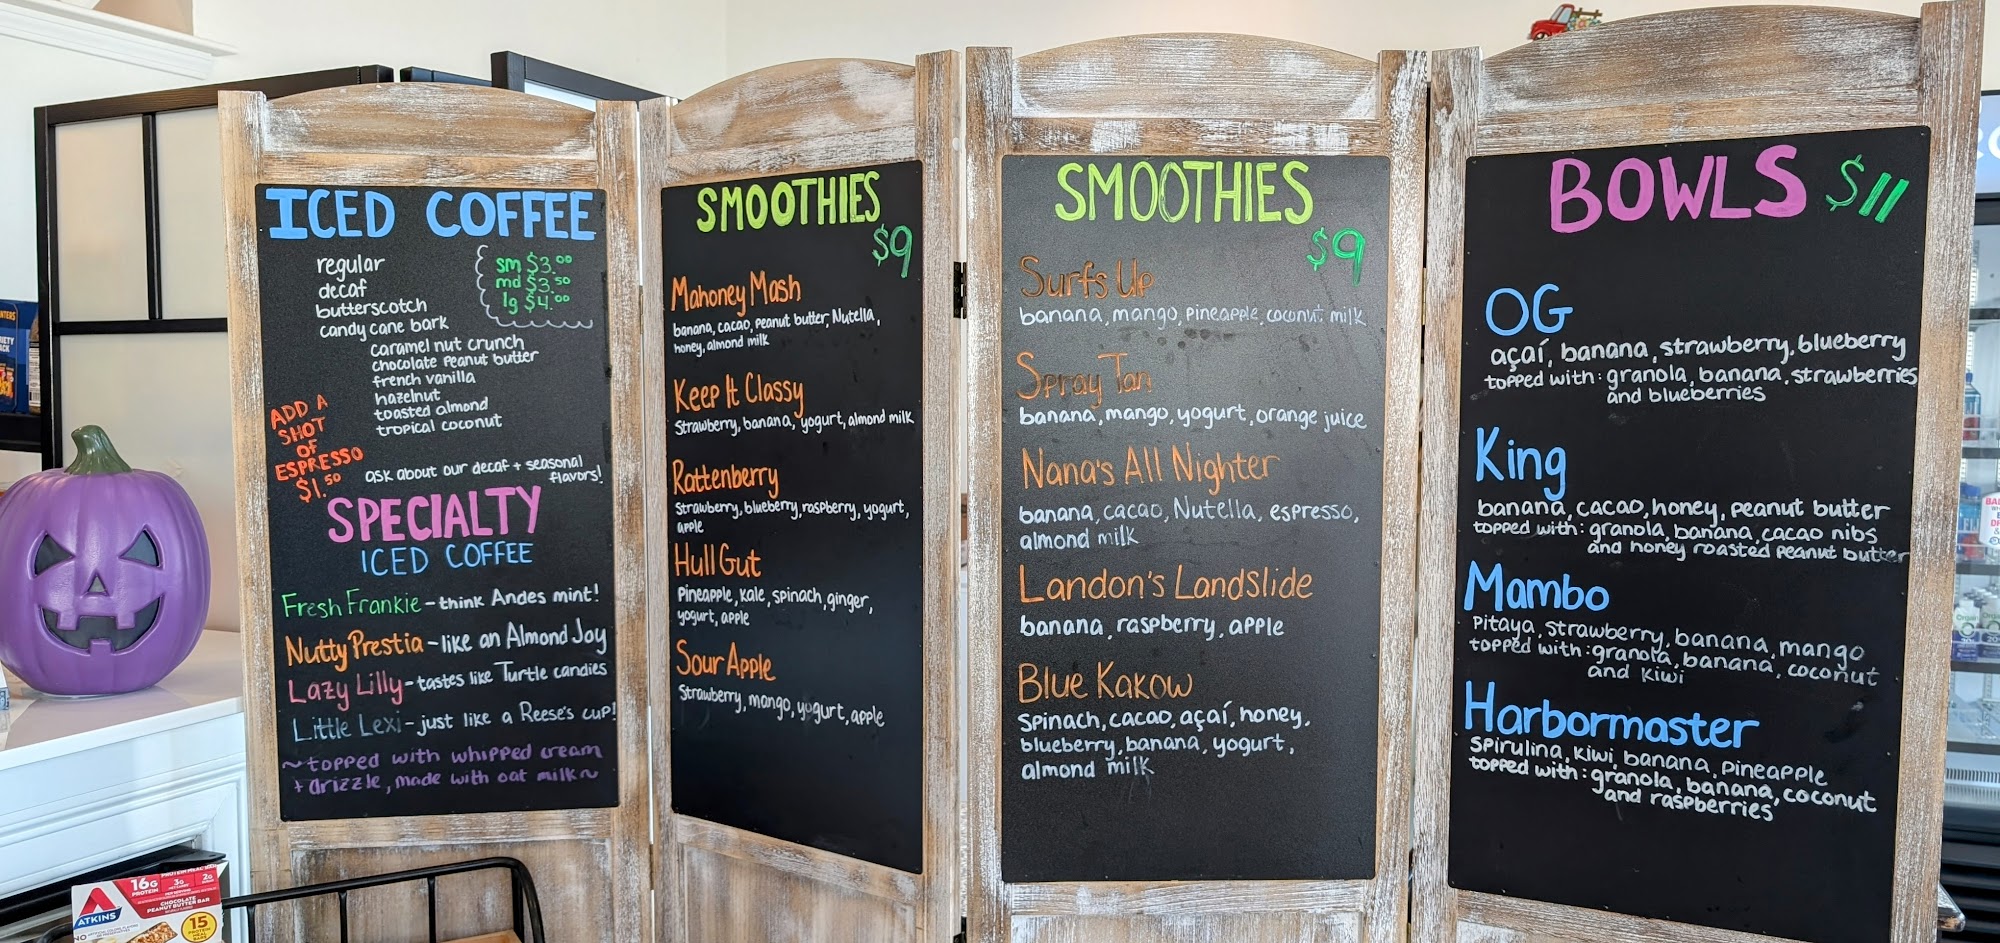 ICED COFFEE
regular
decaf
butterscotch
candy cane bark
caramel nut crunch
chocolate peanut butter
french vanilla
hazelnut
toasted almond
tropical coconut
sm $3.00
md $3.50
lg $4.00
ADD A
SHOT
OF
ESPRESSO
$1.50
ask about our decaf + seasonal
flavors!
SPECIALTY
ICED COFFEE
Fresh Frankie - think Andes mint!
Nutty Prestia - like an Almond Joy
Lazy Lilly - tastes like Turtle candies
Little Lexi - just like a Reese's cup!
~topped with whipped cream
+ drizzle, made with oat milk~
SMOOTHIES
$9
Mahoney Mash
banana, cacao, peanut butter, Nutella,
honey, almond milk
Keep It Classy
Strawberry, banana, yogurt, almond milk
Rattenberry
Strawberry, blueberry, raspberry, yogurt,
apple
Hull Gut
Pineapple, kale, spinach, ginger,
yogurt, apple
Sour Apple
Strawberry, mango, yogurt, apple
SMOOTHIES
$9
Surfs Up
banana, mango, pineapple, coconut milk
Spray Tan
banana, mango, yogurt, orange juice
Nana's All Nighter
banana, cacao, Nutella, espresso,
almond milk
Landon's Landslide
banana, raspberry, apple
Blue Kakow
Spinach, cacao, açaí, honey,
blueberry, banana, yogurt,
almond milk
BOWLS $11
OG
açaí, banana, strawberry, blueberry
topped with: granola, banana, strawberries
and blueberries
King
banana, cacao, honey, peanut butter
topped with: granola, banana, cacao nibs
and honey roasted peanut butter
Mambo
Pitaya, strawberry, banana, mango
topped with: granola, banana, coconut
and kiwi
Harbormaster
Spirulina, kiwi, banana, pineapple
topped with: granola, banana, coconut
and raspberries
ATKINS
16g
PROTEIN
3g
2g
PROTEIN MEAL BAR
CHOCOLATE
PEANUT BUTTER BAR
15